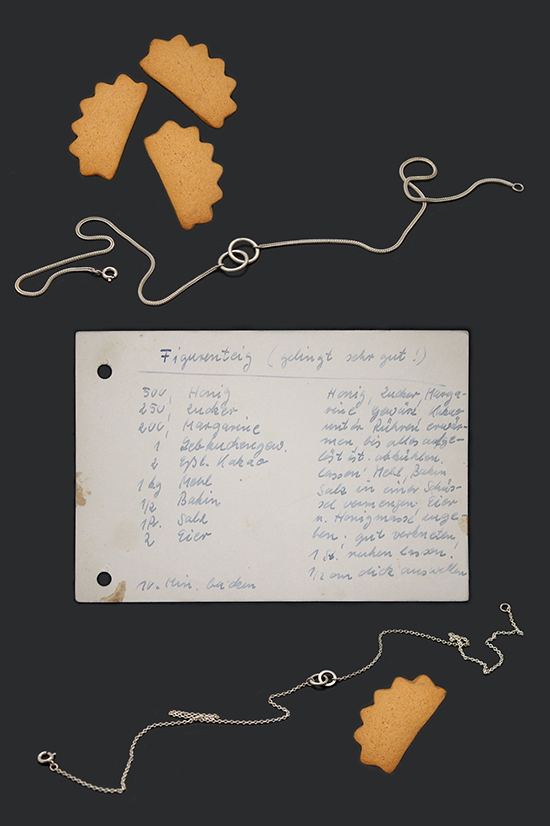 Figurenteig (gelingt sehr gut!)
500, Honig
250, Zucker
200, Margarine
1 Lebkuchengew.
2 Eßl. Kakao
1 kg Mehl
1/2 Bakin
1 Pr. Salz
2 Eier
10. Min. backen
Honig, Zucker, Marga-
rine, Gewürz, Kakao
unter Rühren erwär-
men bis alles aufge-
löst ist. abkühlen
lassen. Mehl, Bakin
Salz in einer Schüs-
sel vermengen, Eier
u. Honigmasse zuge-
ben. gut verkneten,
1 St. ruhen lassen.
1/2 cm dick auswellen